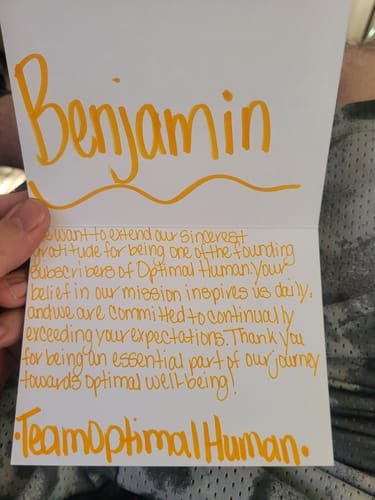 Benjamin
We want to extend our sincerest
gratitude for being one of the founding
subscribers of Optimal Human. Your
belief in our mission inspires us daily,
and we are committed to continually
exceeding your expectations. Thank you
for being an essential part of our journey
towards optimal well-being!
·Team Optimal Human·